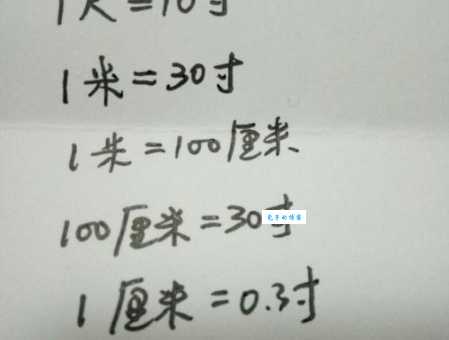 1尺=10寸
1米=30寸
1米=100厘米
100厘米=30寸
1厘米=0.3寸